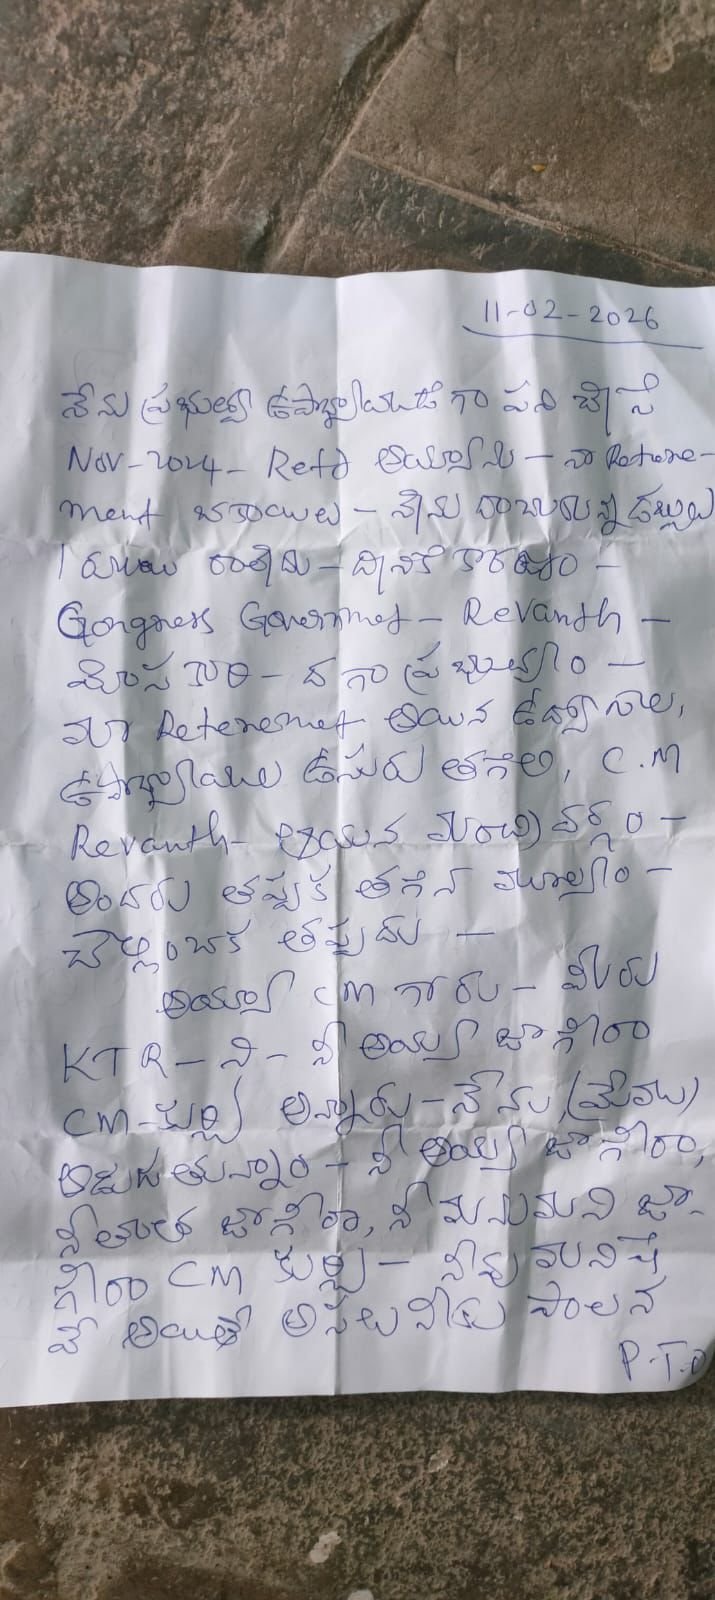 11-02-2026
నేను ప్రభుత్వ ఉపాధ్యాయుడిగా పని చేసి
Nov-2024- Retd అయ్యాను - నా Retire-
ment బకాయిలు - నేను దాచుకున్న డబ్బులు
1 రూపాయి రాలేదు - దీనికి కారణం -
Gongress Governmet - Revanth -
మోసకారి - దగా ప్రభుత్వం -
మా Retenemet అయిన ఉద్యోగుల,
ఉపాధ్యాయుల ఉసురు తగిలి, C.M
Revanth- ఆయన మంత్రి వర్గం -
అందరు తప్పక తగిన మూల్యం -
చెల్లించక తప్పదు -
అయ్యా CM గారు - మీరు
KTR - ని - నీ అయ్య జాగీరా
CM-కుర్చీ అన్నారు - నేను (మేము)
అడుగుతున్నాం - నీ అయ్య జాగీరా,
నీ తాత జాగీరా, నీ మనుమని జా-
గీరా CM కుర్చీ - నీవు మనిషి
వే అయితే అసలు నీకు పాలన
P.T.O